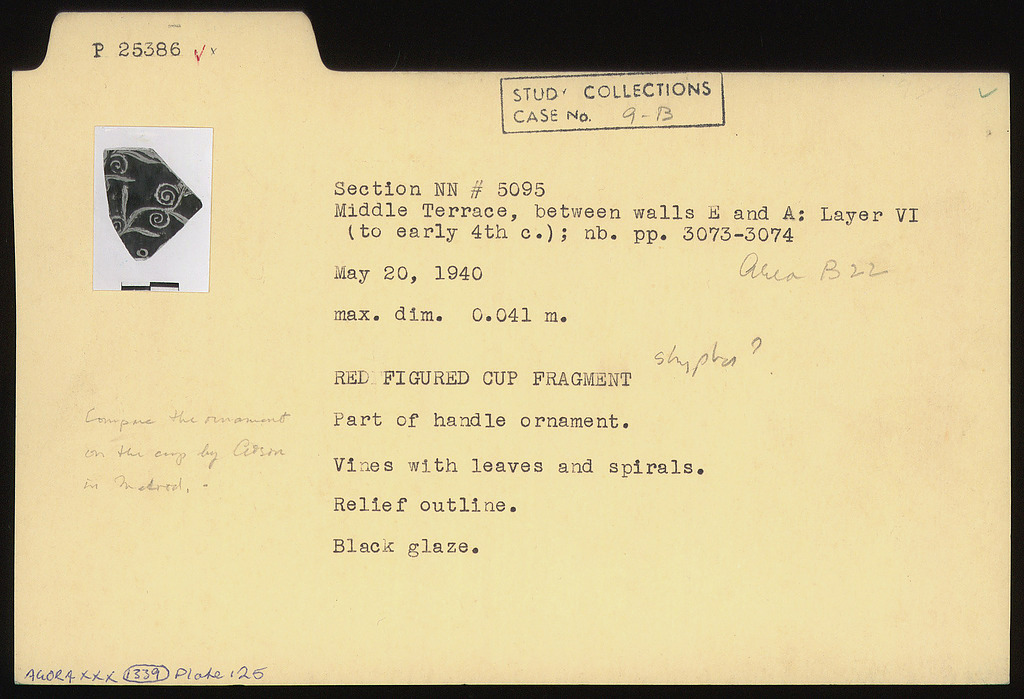 P 25386 √ x
STUDY COLLECTIONS
CASE No. 9-B
Section NN # 5095
Middle Terrace, between walls E and A: Layer VI
(to early 4th c.); nb. pp. 3073-3074
May 20, 1940
Area B 22
max. dim. 0.041 m.
skyphos?
RED FIGURED CUP FRAGMENT
Part of handle ornament.
Compare the ornament
on the cup by Aison
in Madrid. -
Vines with leaves and spirals.
Relief outline.
Black glaze.
AGORA XXX 1339 Plate 125